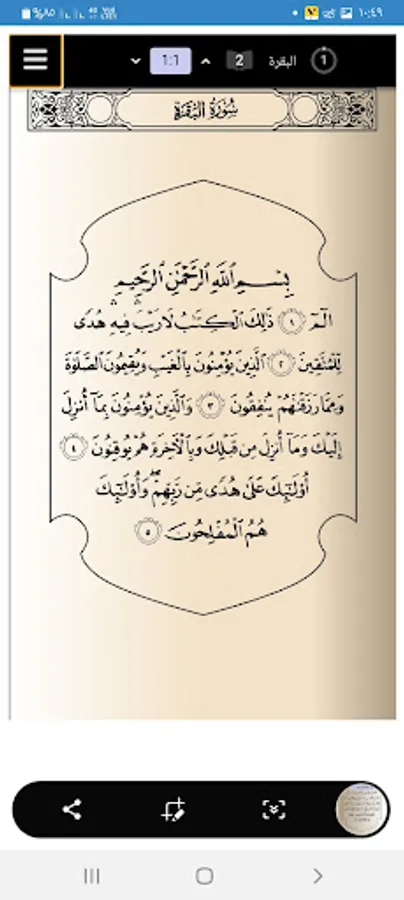 ١٠:٤٩
%٨٥
1 البقرة 2 1:1
سُورَةُ البَقَرَةِ
بِسْمِ ٱللَّهِ ٱلرَّحْمَٰنِ ٱلرَّحِيمِ
الٓمٓ ١ ذَٰلِكَ ٱلْكِتَٰبُ لَا رَيْبَ فِيهِ هُدًى
لِّلْمُتَّقِينَ ٢ ٱلَّذِينَ يُؤْمِنُونَ بِٱلْغَيْبِ وَيُقِيمُونَ ٱلصَّلَوٰةَ
وَمِمَّا رَزَقْنَٰهُمْ يُنفِقُونَ ٣ وَٱلَّذِينَ يُؤْمِنُونَ بِمَآ أُنزِلَ
إِلَيْكَ وَمَآ أُنزِلَ مِن قَبْلِكَ وَبِٱلْءَاخِرَةِ هُمْ يُوقِنُونَ ٤
أُوْلَٰٓئِكَ عَلَىٰ هُدًى مِّن رَّبِّهِمْ ۖ وَأُوْلَٰٓئِكَ
هُمُ ٱلْمُفْلِحُونَ ٥